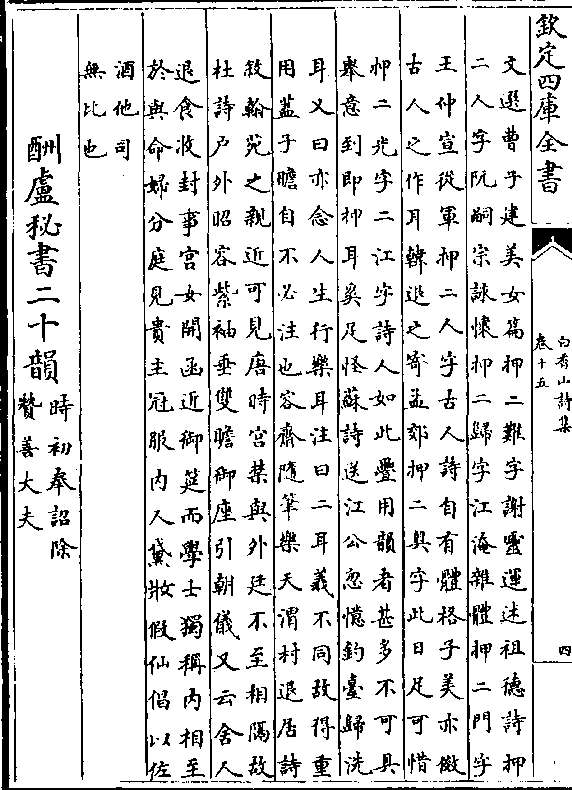 欽定四庫全書
白香山詩集
卷十五
四
文選曹子建美女篇押二難字謝靈運述祖德詩押
二人字阮嗣宗詠懷押二歸字江淹雜體押二門字
王仲宣從軍押二人字古人詩自有體格子美亦傚
古人之作耳韓退之寄孟郊押二奥字此日足可惜
押二光字二江字詩人如此疊用韻者甚多不可具
舉意到即押耳奚足怪蘇詩送江公忽憶釣臺歸洗
耳又曰亦念人生行樂耳注曰二耳義不同故得重
用葢子瞻自不必注也容齋隨筆樂天渭村退居詩
敘翰苑之親近可見唐時宮禁與外廷不至相隔故
杜詩户外昭容紫袖垂雙瞻御座引朝儀又云舍人
退食收封事宮女開函近御筵而學士獨稱内相至
於與命婦分庭見貴主冠服内人黛妝假仙倡以佐
酒他司
無比也
酬盧秘書二十韻
時初奉詔除
賛善大夫